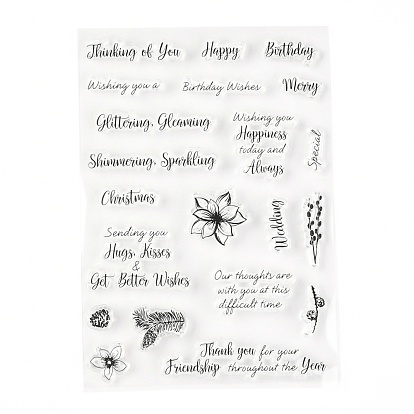 Thinking of You Happy Birthday
Wishing you a Birthday Wishes Merry
Glittering, Gleaming
Wishing you
Happiness
today and
Always
Special
Shimmering, Sparkling
Christmas
Wedding
Sending you
Hugs, Kisses
&
Get Better Wishes
Our thoughts are
with you at this
difficult time
Thank you for your
Friendship throughout the Year